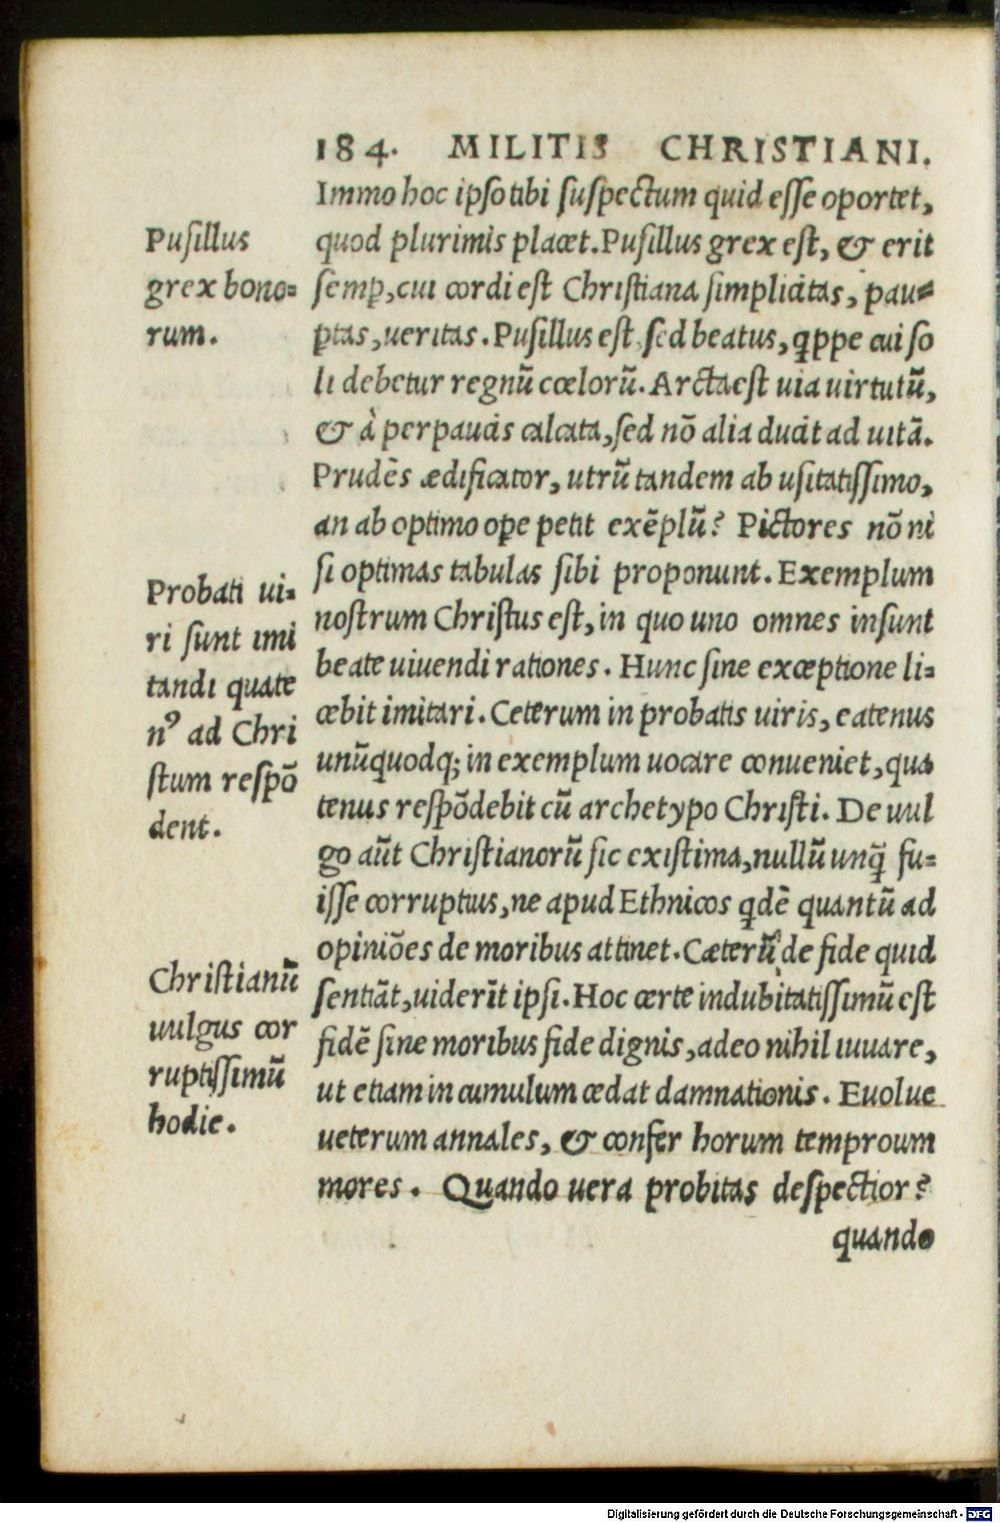 184. MILITIS CHRISTIANI.
Immo hoc ipso tibi ſuſpectum quid eſſe oportet,
quod plurimis placet. Puſillus grex eſt, & erit
ſemꝑ, cui cordi eſt Chriſtiana ſimplicitas, pau-
ꝑtas, ueritas. Puſillus eſt ſed beatus, ꝗppe cui ſo
li debetur regnũ cœlorũ. Arcta eſt uia uirtutũ,
& à perpaucis calcata, ſed nõ alia ducit ad uitã.
Prudẽs ædificator, utrũ tandem ab uſitatiſſimo,
an ab optimo ope petit exẽplũ? Pictores nõ ni
ſi optimas tabulas ſibi proponunt. Exemplum
noſtrum Chriſtus eſt, in quo uno omnes inſunt
beate uiuendi rationes. Hunc ſine exceptione li-
cebit imitari. Ceterum in probatis uiris, eatenus
unũquodq; in exemplum uocare conueniet, qua
tenus reſpõdebit cũ archetypo Chriſti. De uul
go aũt Chriſtianorũ ſic exiſtima, nullũ unꝗ̃ fu-
iſſe corruptius, ne apud Ethnicos ꝗdẽ quantũ ad
opiniões de moribus attinet. Cæterũ de fide quid
ſentiãt, uiderĩt ipſi. Hoc certe indubitatiſſimũ eſt
fidẽ ſine moribus fide dignis, adeo nihil iuuare,
ut etiam in cumulum cedat damnationis. Euolue
ueterum annales, & confer horum temproum
mores. Quando uera probitas deſpectior?
quando
Puſillus
grex bono-
rum.
Probati ui-
ri ſunt imi
tandi quate
nꝰ ad Chri
ſtum reſpõ
dent.
Chriſtianũ
uulgus cor
ruptiſſimũ
hodie.
Digitalisierung gefördert durch die Deutsche Forschungsgemeinschaft - DFG